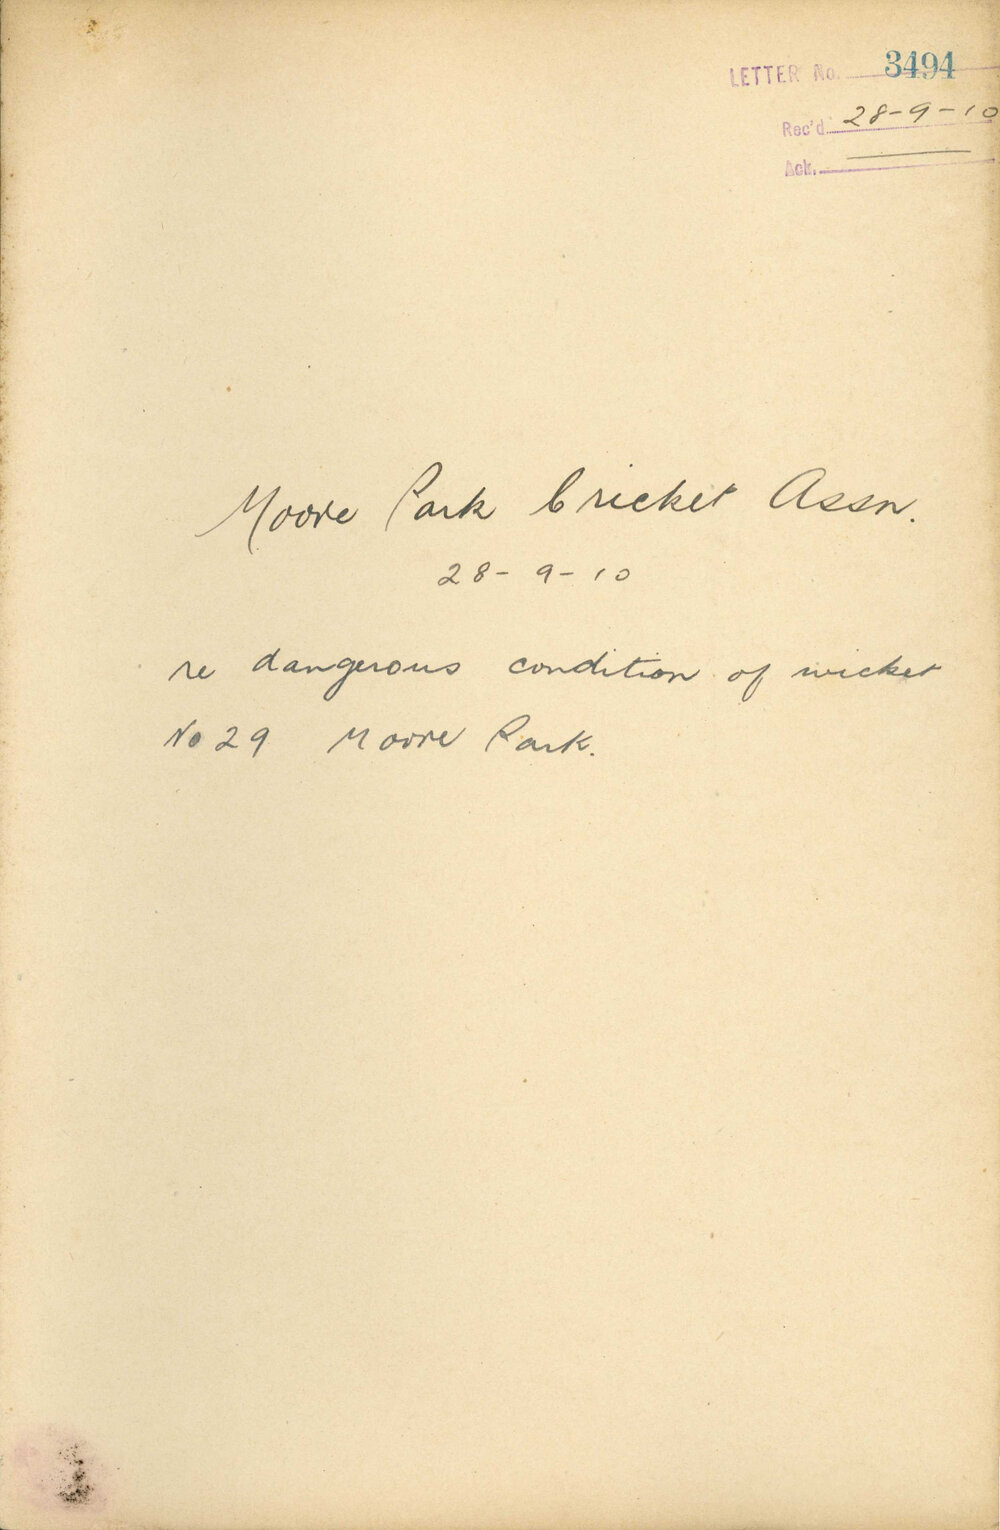 LETTER No. 3494
Rec'd 28-9-10
Ack.
Moore Park Cricket Assn.
28-9-10
re dangerous condition of wicket
No 29 Moore Park.